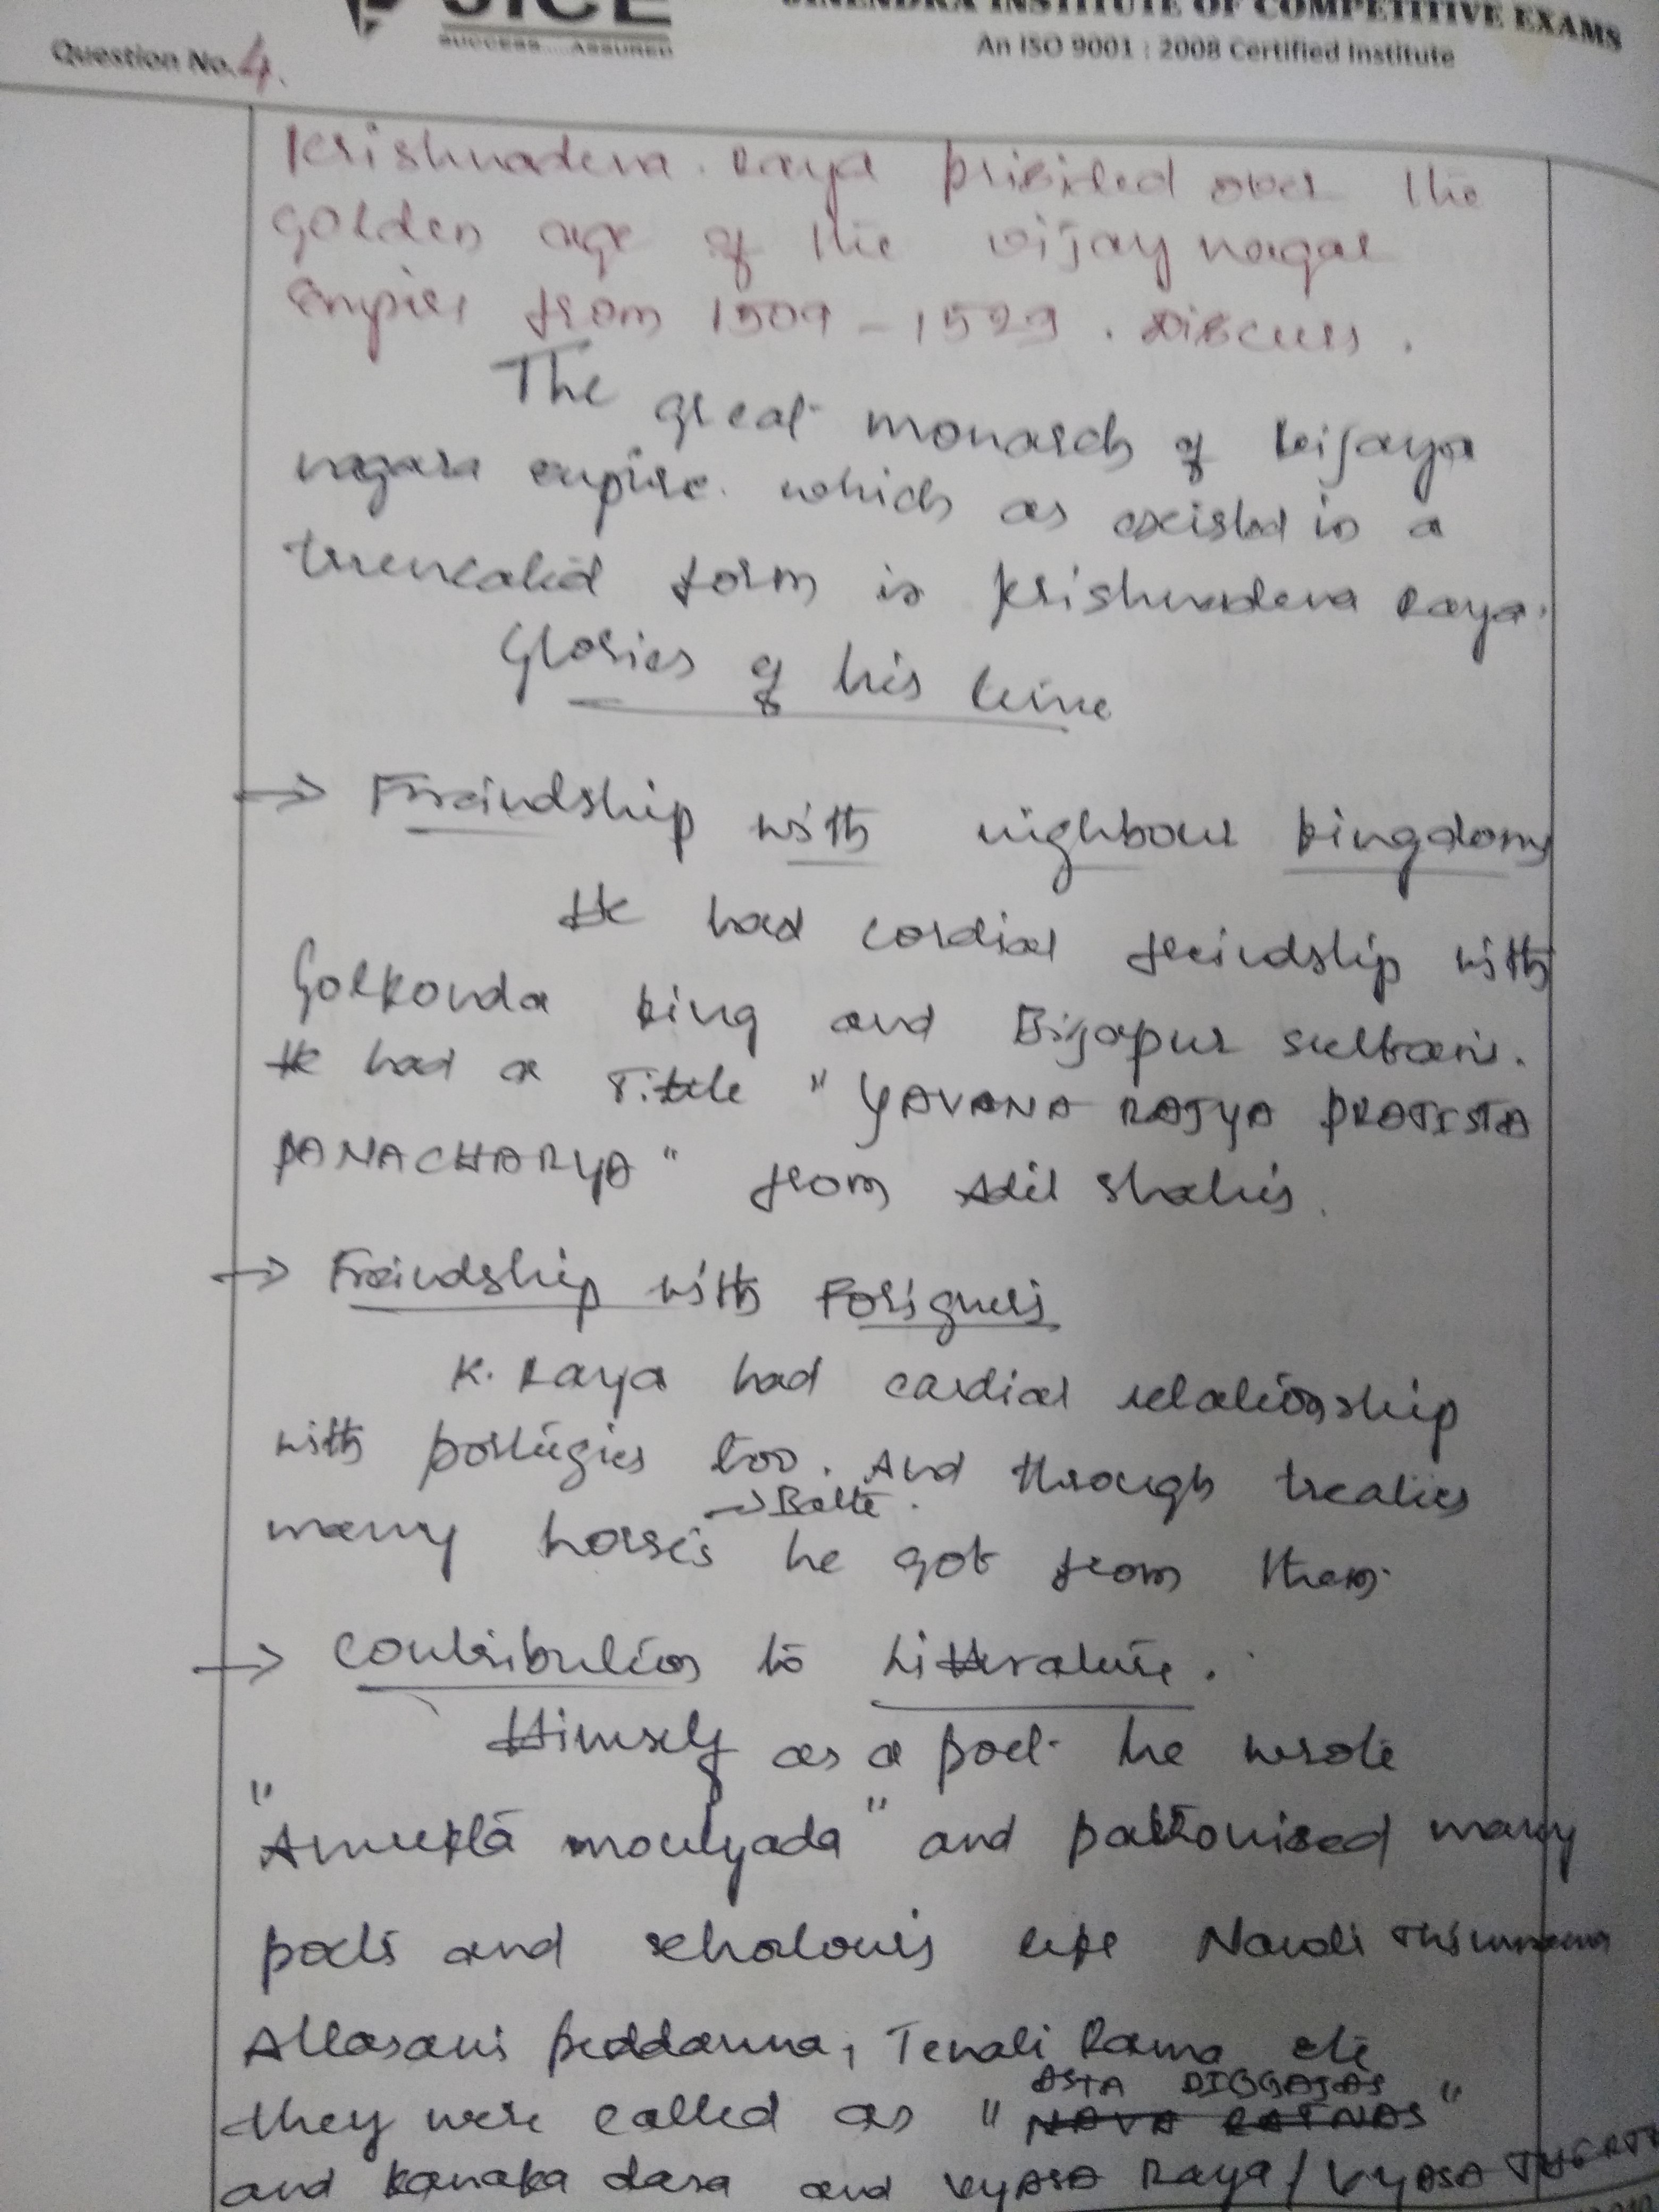 JICE
JINENDRA INSTITUTE OF COMPETITIVE EXAMS
SUCCESS....ASSURED
An ISO 9001 : 2008 Certified Institute
Question No. 4.
Krishnadeva. Raya prisided over the
golden age of the vijaynagar
Empire from 1509 - 1529 . Discuss .
The great monarch of Vijaya
nagara empire. which as existed in a
truncated form is Krishnadeva Raya.
Glories of his time
→ Freindship with nighbour kingdoms
He had cordial freindship with
Golkonda king and Bijapur sultans.
He had a Tittle " YAVANA RAJYA PRATISTA
PANACHARYA " from Adil shahis.
→ Freindship with Forigners
K. Raya had cardial relationship
with portugies too. And through treaties
→ Batte .
many horses he got from them.
→ Contribution to Litterature .
Himself as a poet he wrote
"Amukta moulyada" and patronised many
poets and scholours like Nandi Thimmana
Allasani peddanna, Tenali Rama etc
ASTA DIGGAJAS
they were called as " NAVA RATNAS "
and Kanaka dasa and VYASA Raya/